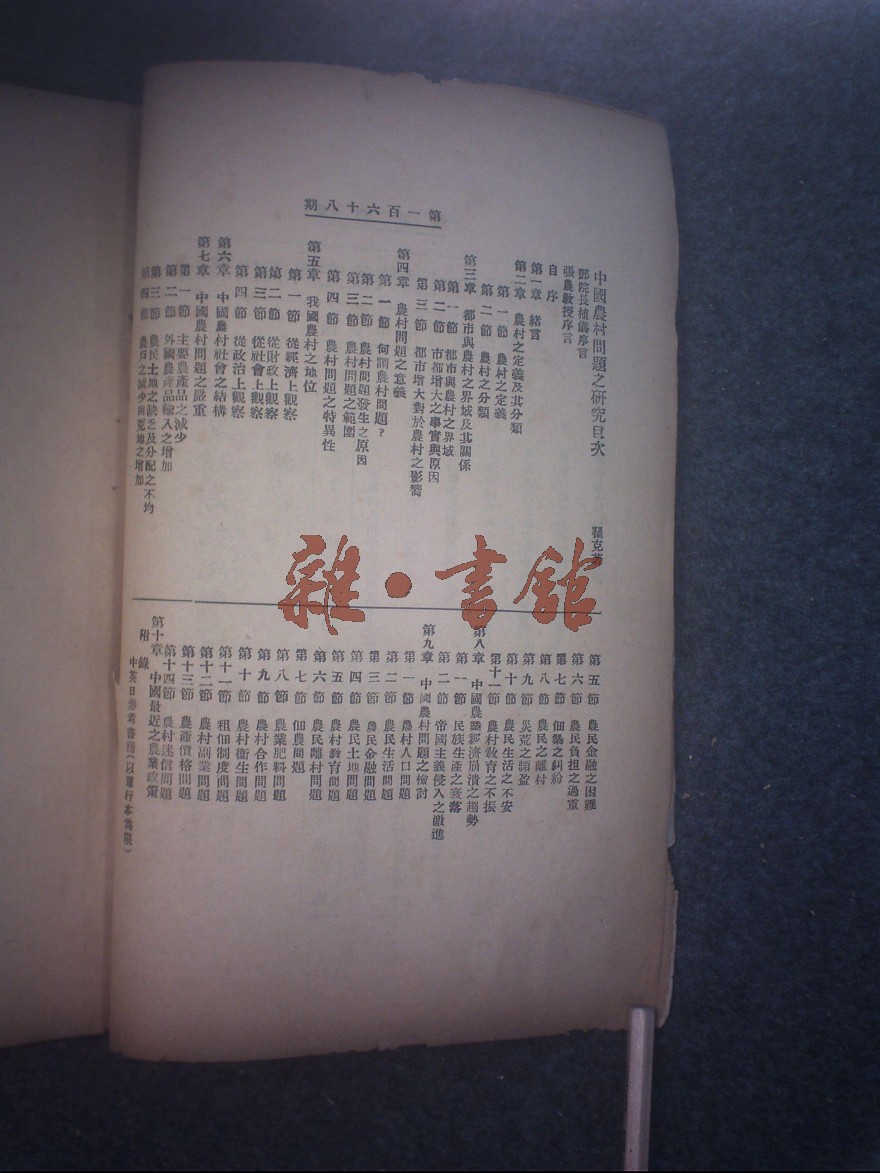 第一百六十八期
中國農村問題之研究目次
鄧院長植儀序言
張農教授序言
自序
第一章 緒言
第二章 農村之定義及其分類
第一節 農村之定義
第二節 農村之分類
第三章 都市與農村之界域及其關係
第一節 都市與農村之界域
第二節 市都增大之事實與原因
第三節 都市增大對於農村之影響
第四章 農村問題之意義
第一節 何謂農村問題?
第二節 農村問題發生之原因
第三節 農村問題之範圍
第四節 農村問題之特異性
第五章 我國農村之地位
第一節 從經濟上觀察
第二節 從財政上觀察
第三節 從社會上觀察
第四節 從政治上觀察
第六章 中國農村社會之結構
第七章 中國農村問題之嚴重
第一節 主要農產品之減少
第二節 外國農產品輸入之增加
第三節 農民土地之缺乏及分配之不均
第四節 農戶之減少與荒地之增加
第五節 農民金融之困難
第六節 農民負担之過重
第七節 佃縣之糾紛
第八節 農民之離村
第九節 災荒之頻盈
第十節 農民生活之不安
第十一節 農村敎育之不振
第八章 中國農業經濟崩潰之趨勢
第一節 民族生產之衰落
第二節 帝國主義侵入之激進
第九章 中國農村問題之檢討
第一節 農村人口問題
第二節 農民生活問題
第三節 農民金融問題
第四節 農民土地問題
第五節 農村敎育問題
第六節 農民離村問題
第七節 佃農問題
第八節 農業肥料問題
第九節 農村合作問題
第十節 農村衛生問題
第十一節 租佃制度問題
第十二節 農村副業問題
第十三節 農產價格問題
第十四節 農村迷信問題
第十章 中國最近之農業政策
附錄
中英日參考書籍(以單行本為限)
雜·書館